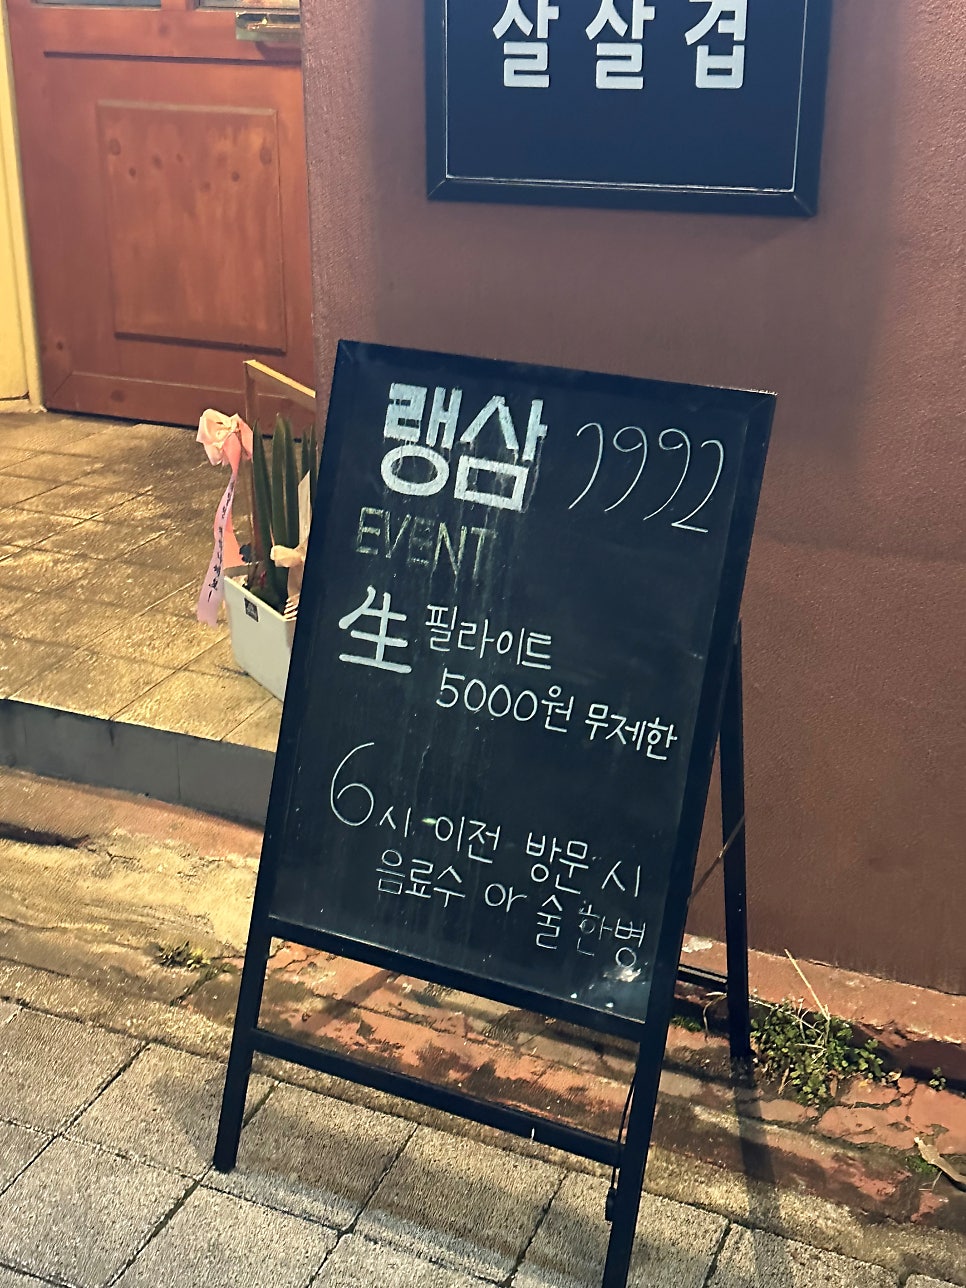 살살겹
랭삼 1992
EVENT
生 필라이트
5000원 무제한
6시 이전 방문 시
음료수 or 술 한병